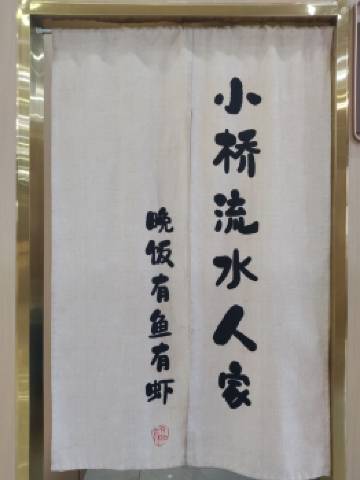 小桥流水人家
晚饭有鱼有虾